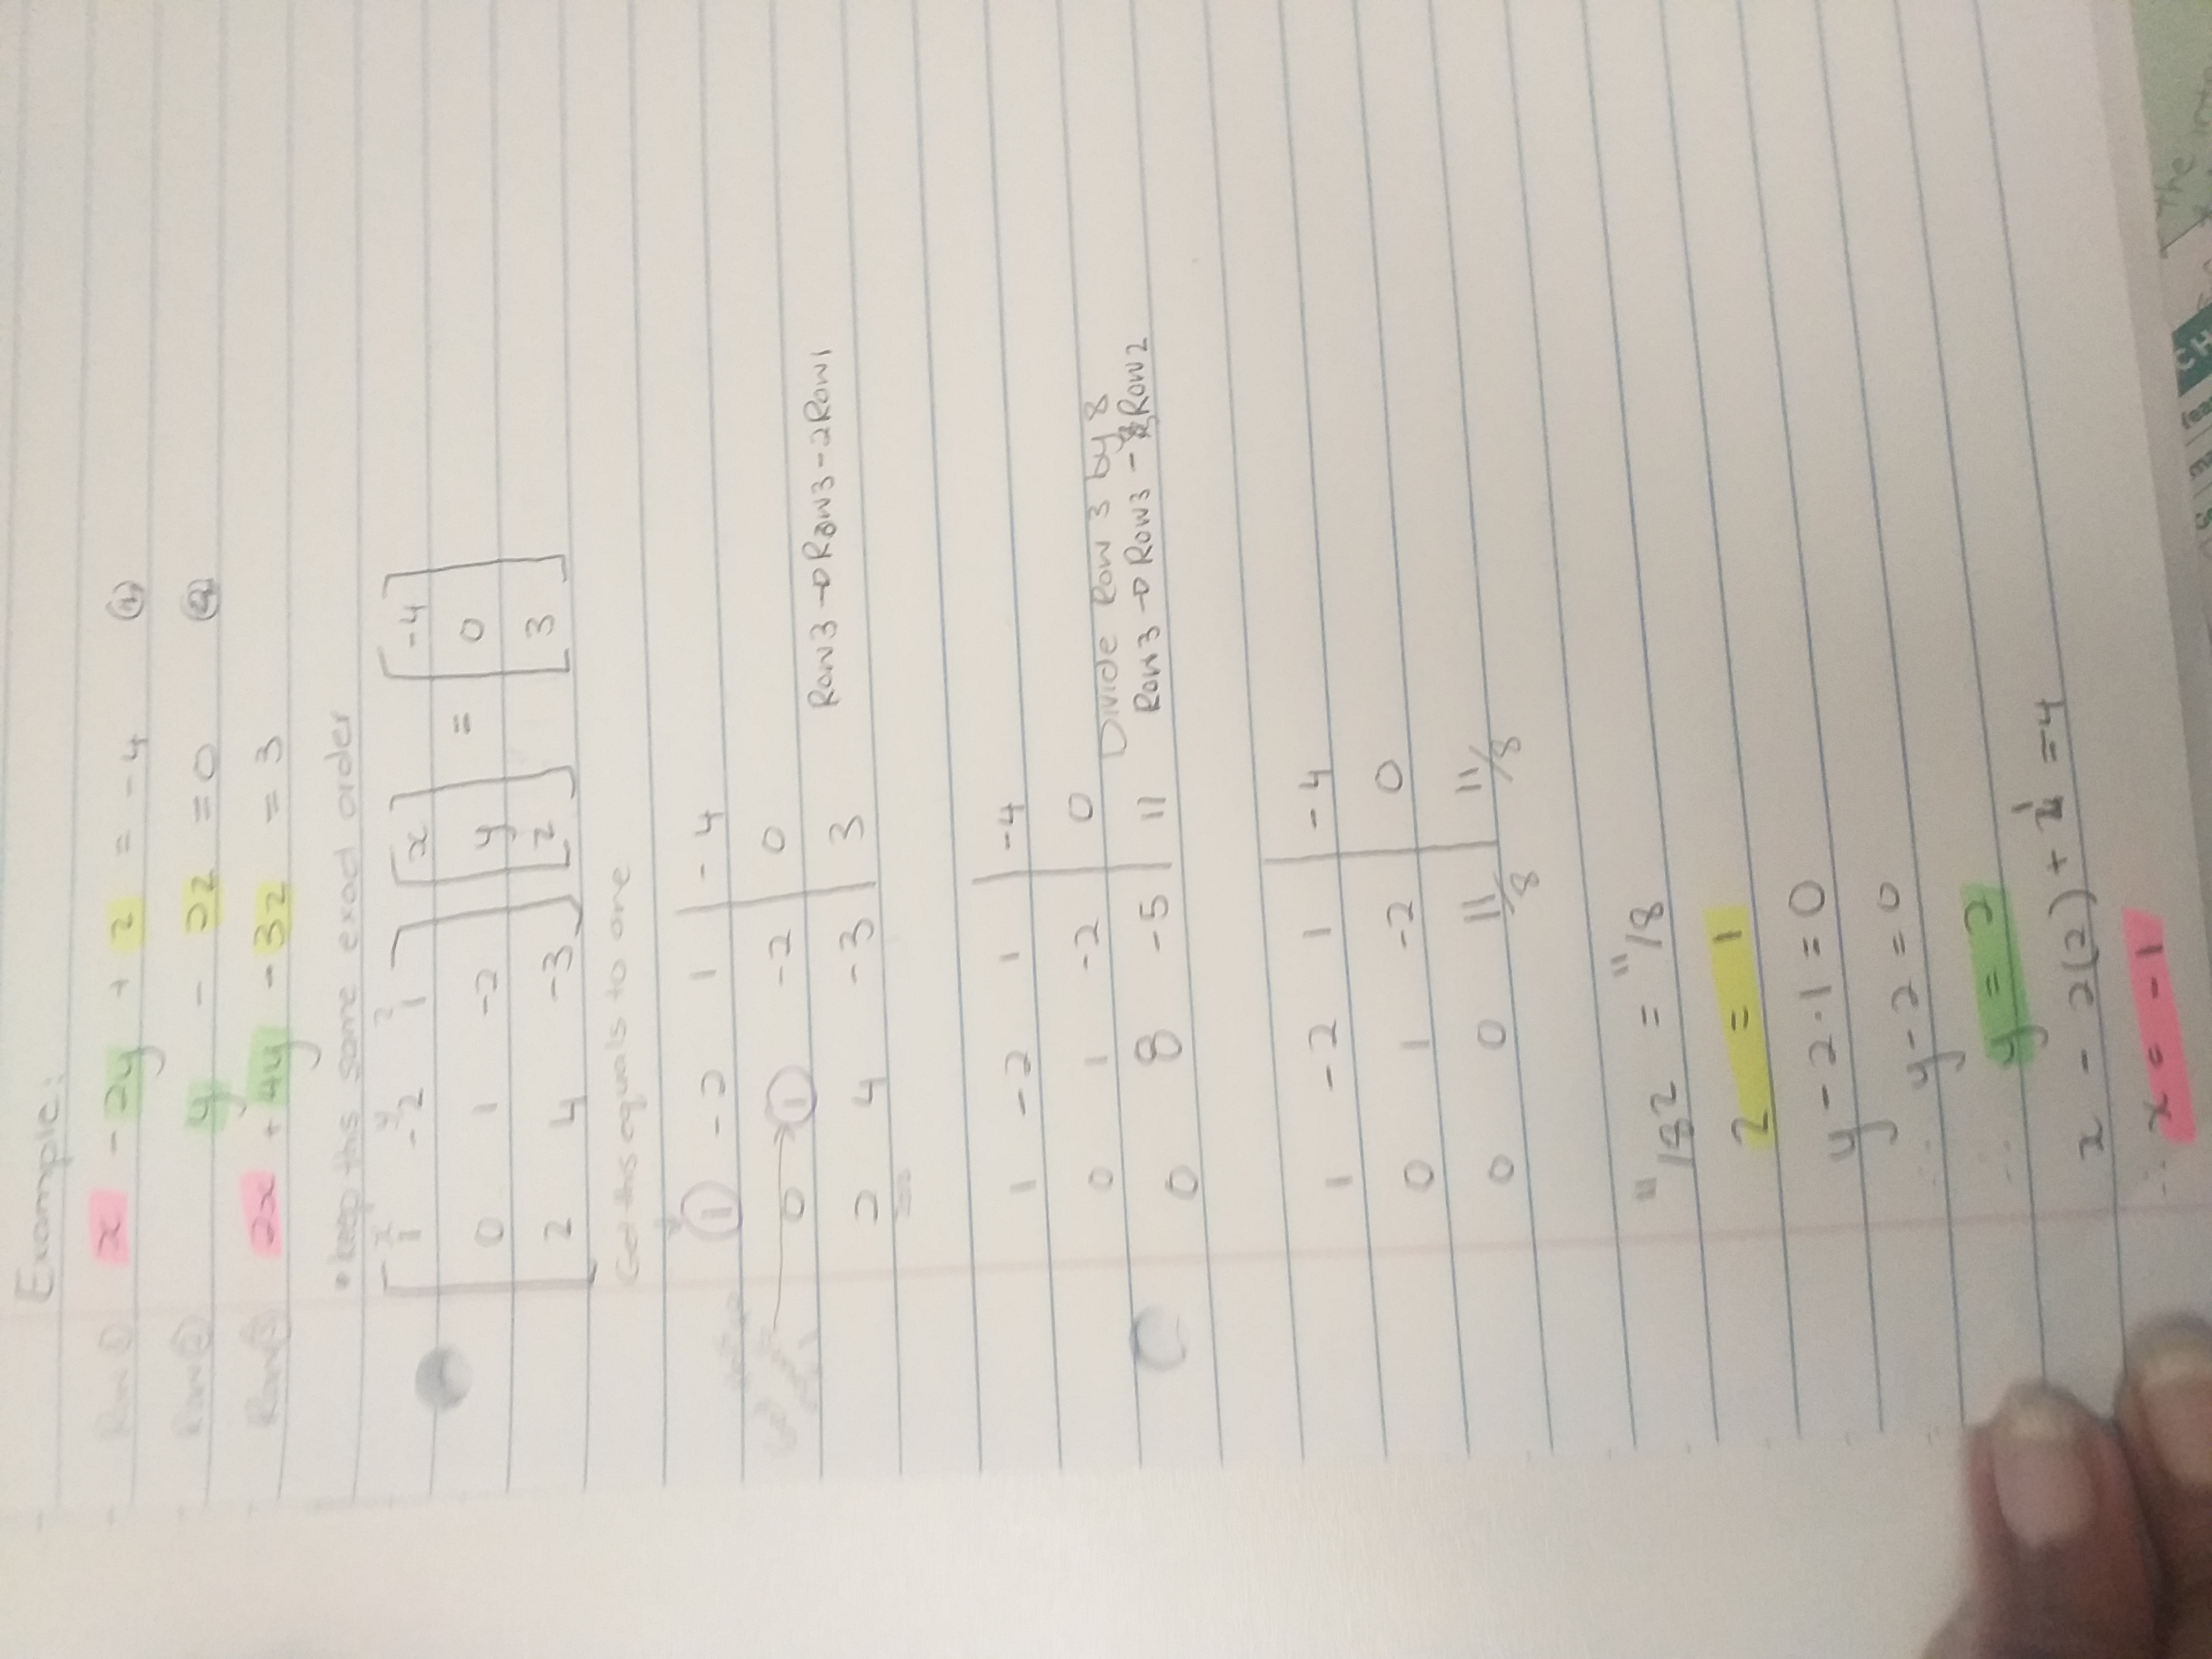 Example:
Row ① x - 2y + z = -4 ①
Row ② y - 2z = 0 ②
Row ③ 2x + 4y - 3z = 3
• keep this same exact order
x y z
[1 -2 1] [x] [-4]
[0 1 -2] [y] = [0]
[2 4 -3] [z] [3]
Get this equals to one
① -2 1 | -4
0 ① -2 | 0
2 4 -3 | 3 Row3 → Row3 - 2Row1
1 -2 1 | -4
0 1 -2 | 0
Divide Row 3 by 8
0 8 -5 | 11 Row3 → Row3 - Row2
1 -2 1 | -4
0 1 -2 | 0
0 0 11/8 | 11/8
11/8z = 11/8
z = 1
y - 2·1 = 0
∴ y - 2 = 0
∴ y = 2
x - 2(2) + 1 = -4
∴ x = -1
The
CH